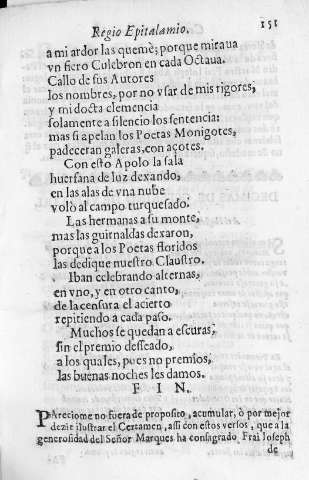 Regio Epitalamio. 151
a mi ardor las quemè; porque miraua
vn fiero Culebron en cada Octaua.
Callo de sus Autores
los nombres, por no vsar de mis rigores,
y mi docta clemencia
solamente a silencio los sentencia:
mas si apelan los Poetas Monigotes,
padeceran galeras, con açotes.
Con esto Apolo la sala
huerfana de luz dexando,
en las alas de vna nube
volò al campo turquesado.
Las hermanas a su monte,
mas las guirnaldas dexaron,
porque a los Poetas floridos
las dedique nuestro Claustro.
Iban celebrando alternas,
en vno, y en otro canto,
de la censura el acierto
repitiendo a cada paso.
Muchos se quedan a escuras,
sin el premio desseado,
a los quales, pues no premios,
las buenas noches les damos.
F I N.
PAreciome no fuera de proposito, acumular, ò por mejor
dezir ilustrar el Certamen, assi con estos versos, que a la
generosidad del Señor Marques ha consagrado Frai Ioseph
de